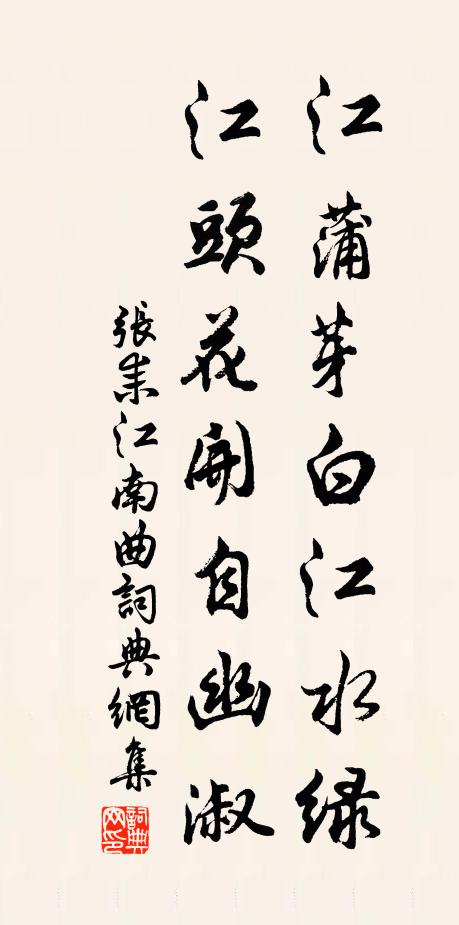 江蒲芽白江水綠
江頭花開自幽淑
張耒江南曲詞典網集
詞典網印